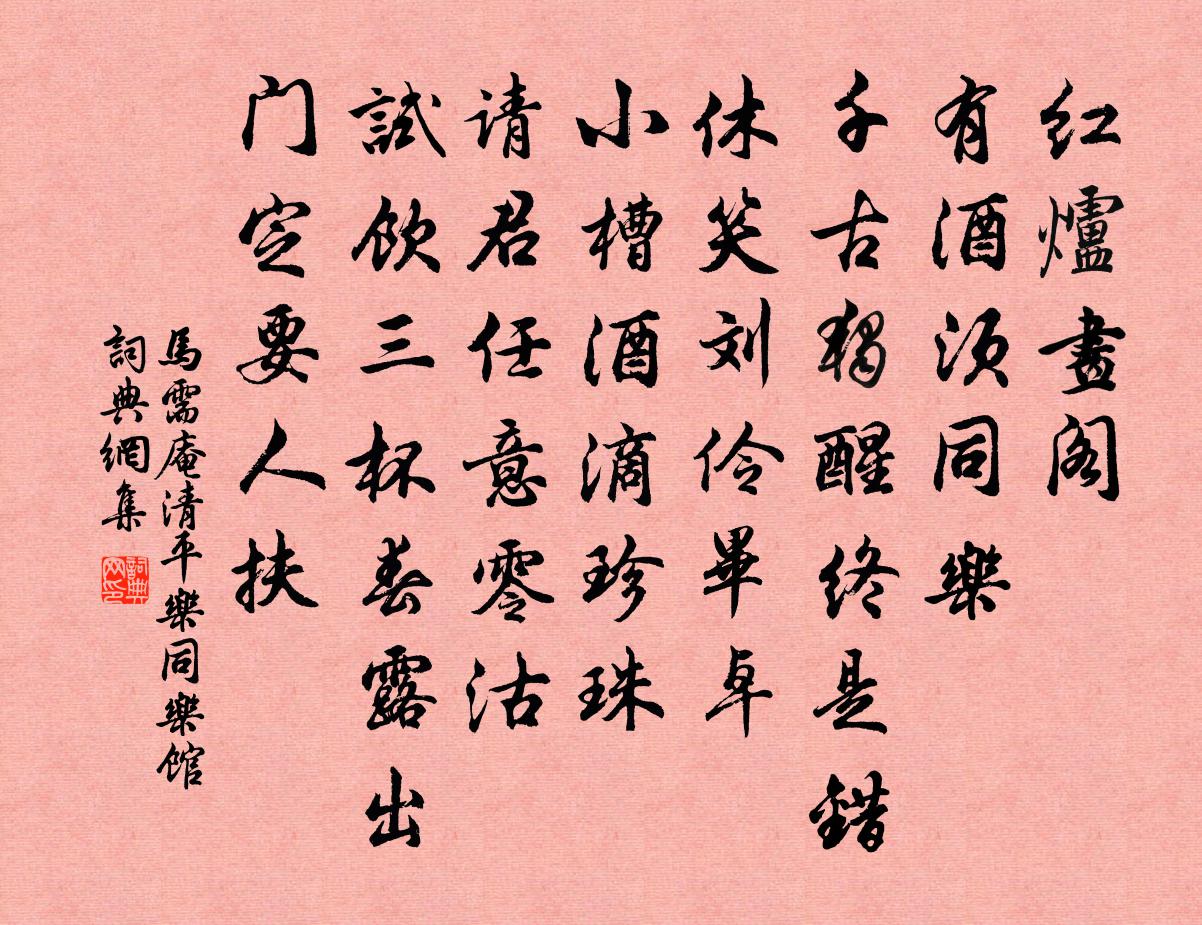 红爐畫阁
有酒须同樂
千古獨醒终是錯
休笑刘伶畢卓
小槽酒滴珍珠
请君任意零沽
試飲三杯春露出
门定要人扶
馬需庵清平樂同樂馆
詞典網集
詞典网印